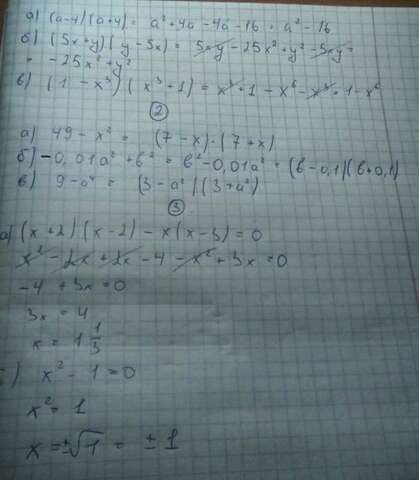 а) (a-4)(a+4) = a² + 4a - 4a - 16 = a² - 16
б) (5x+y)(y-5x) = 5xy - 25x² + y² - 5xy =
= -25x² + y²
в) (1-x³)(x³+1) = x³ + 1 - x⁶ - x³ = 1 - x⁶
2
а) 49 - x² = (7-x)·(7+x)
б) -0,01a² + b² = b² - 0,01a² = (b-0,1)(b+0,1)
в) 9 - a⁴ = (3-a²)(3+a²)
3
а) (x+2)(x-2) - x(x-3) = 0
x² - 2x + 2x - 4 - x² + 3x = 0
-4 + 3x = 0
3x = 4
x = 1 1/3
) x² - 1 = 0
x² = 1
x = ±√1 = ±1